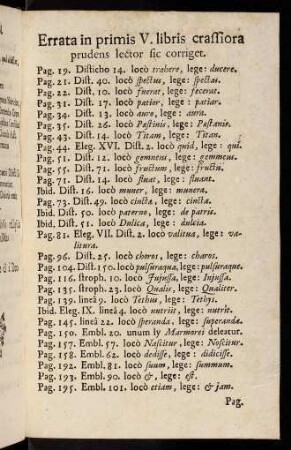 Errata in primis V. libris crassiora
prudens lector sic corriget.
Pag. 19. Disticho 14. locò trahere, lege: ducere.
Pag. 21. Dist. 40. locò spectus, lege: spectas.
Pag. 22. Dist. 10. locò fuerat, lege: fecerat.
Pag. 31. Dist. 17. locò patior, lege: patiar.
Pag. 34. Dist. 13. locò aure, lege: aura.
Pag. 35. Dist. 26. locò Pæstinis, lege: Pæstanis.
Pag. 43. Dist. 14. locò Titam, lege: Titan.
Pag. 44. Eleg. XVI. Dist. 2. locò quid, lege: qui.
Pag. 51. Dist. 12. locò gemnens, lege: gemmeus.
Pag. 55. Dist. 71. locò fructum, lege: fructu.
Pag. 71. Dist. 14. locò fluat, lege: fluant.
Ibid. Dist. 16. locò muner, lege: munera.
Pag. 73. Dist. 49. locò cincta, lege: cinctæ.
Ibid. Dist. 50. locò paterne, lege: de patrie.
Ibid. Dist. 51. locò Dulica, lege: dulcia.
Pag. 81. Eleg. VII. Dist. 2. locò valitua, lege: va-
litura.
Pag. 96. Dist. 25. locò choros, lege: charos.
Pag. 104. Dist. 150. locò pulsuraqua, lege: pulsuraque.
Pag. 116. stroph. 10. locò Jujussa, lege: Injussa.
Pag. 135. stroph. 23. locò Qualis, lege: Qualiter.
Pag. 139. lineâ 9. locò Tethus, lege: Tethys.
Ibid. Eleg. IX. lineâ 4. locò nutriit, lege: nutrit.
Pag. 145. lineâ 22. locò speranda, lege: superanda.
Pag. 150. Embl. 20. unum ly Marmorei deleatur.
Pag. 157. Embl. 57. locò Nascitur, lege: Noscitur.
Pag. 158. Embl. 62. locò dedisse, lege: didicisse.
Pag. 192. Embl. 81. locò suum, lege: summum.
Pag. 193. Embl. 90. locò &, lege: est.
Pag. 195. Embl. 101. locò etiam, lege: & jam.
Pag.